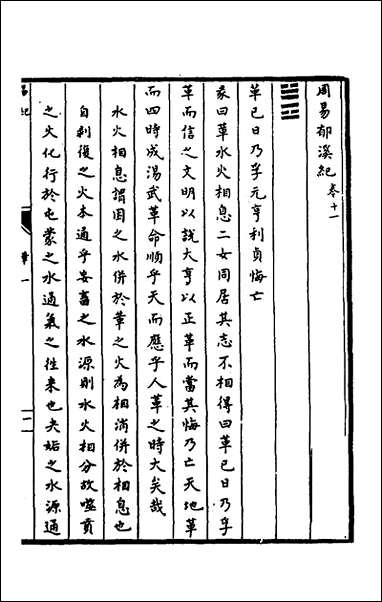 周易郁溪紀卷十一
革已日乃孚元亨利貞悔亡
彖曰革水火相息二女同居其志不相得曰革已日乃孚
革而信之文明以說大亨以正革而當其悔乃亡天地革
而四時成湯武革命順乎天而應乎人革之時大矣哉
水火相息謂困之水併於革之火為相消併於相息也
自剥復之火本通乎妄畜之水源則水火相分故噬賁
之火化行於屯蒙之水通氣之徃來也夫姤之水源通
革一